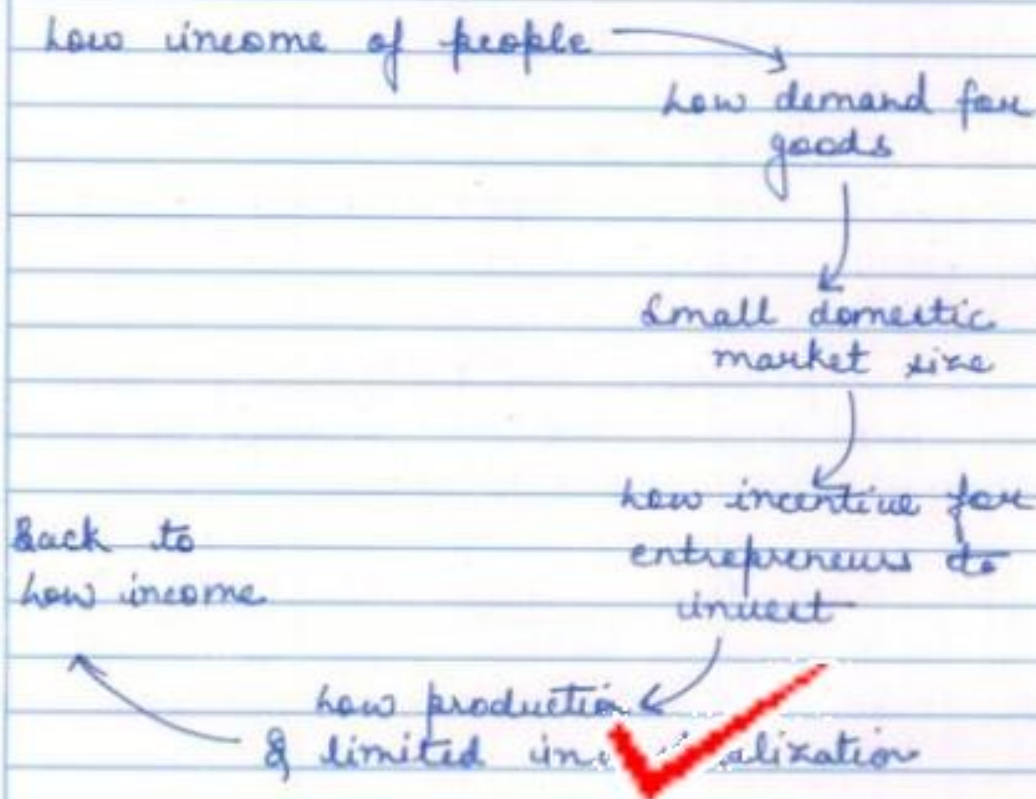 Low income of people
Low demand for
goods
Small domestic
market size
Low incentive for
entrepreneurs to
invest
Low production
& limited
Back to
Low income